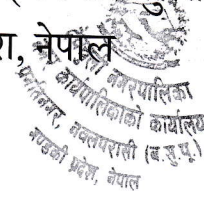 रा, नेपाल
नगरपालिका
कार्यपालिकाको कार्यालय
नवलपरासी (ब.सु.पू.)
गण्डकी प्रदेश, नेपाल